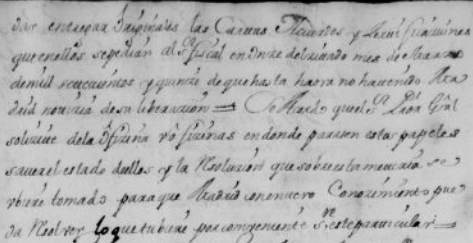 dar entregar Originales las Cartas Acuerdos y Justificaciones
que en ellos se pedian al Sr fiscal en Onze del mes de
de mill setecientos y quinze de que hasta haora no havendo
noticia de su liberazion = Se Acordo que el Sr Gral
solizite de la oficina v oficinas en donde parasen estos papeles
saver el estado dellos y la Resoluzion que sobre esta materia se
ubiere tomado para que Madrid con nuevo Conozimiento pue
da Resolver lo que tubiere por combeniente este particular =